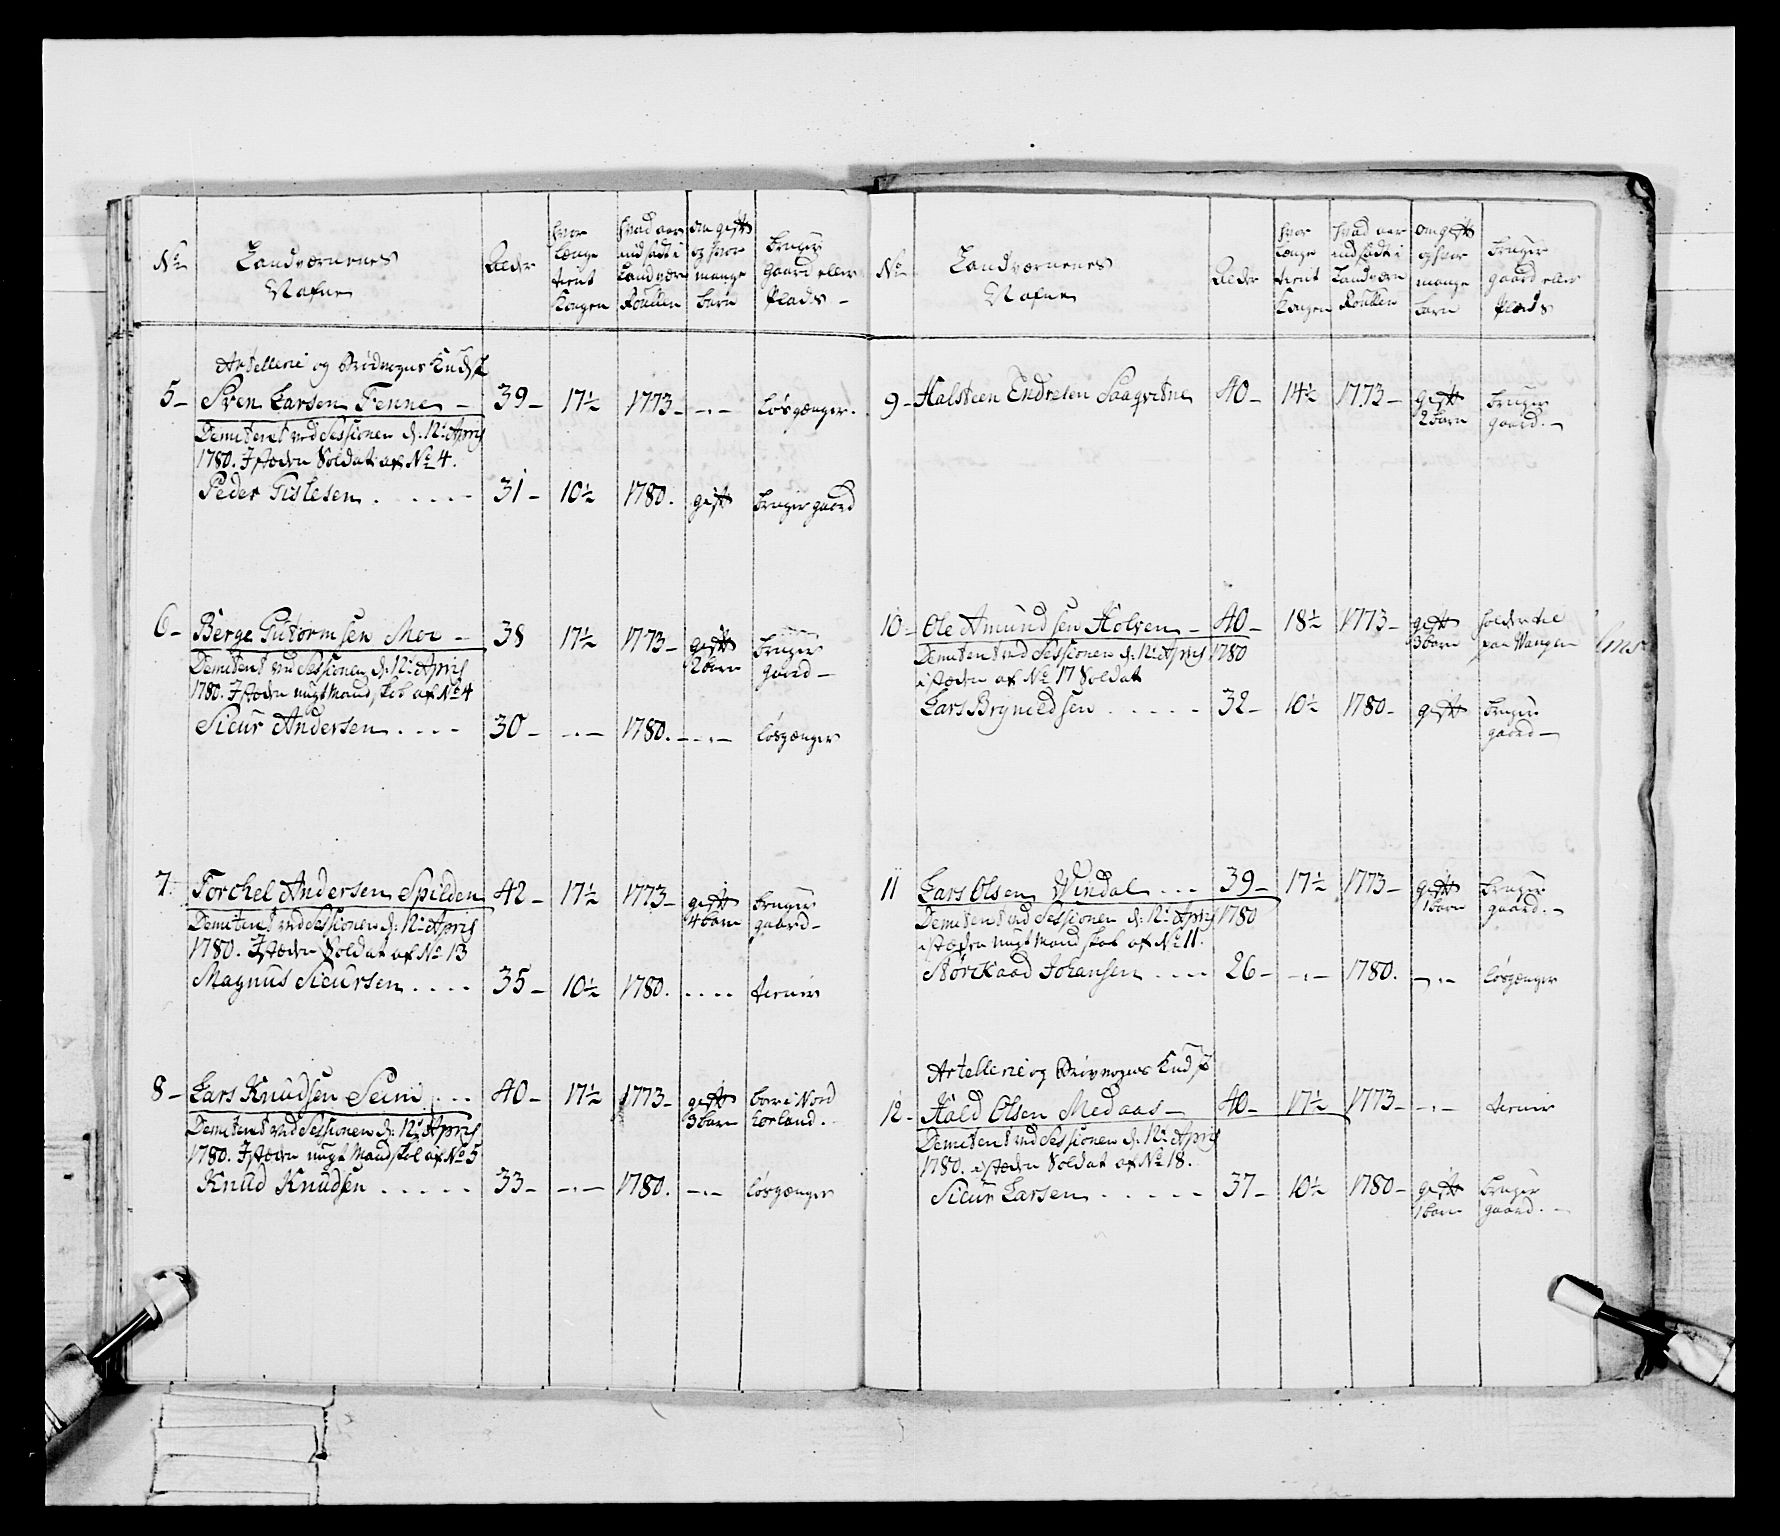 No
Landværnenes
Nafne
Alder
hvor
længe
tient
Kongen
hvad aar
indsadt i
Landværn
Roullen
om gift
og hvor
mange
barn
bruger
Gaard eller
Plads -
Artellerie og Brødvogns Kudsk
5 - Sven Larsen Fenne - 39 - 17½ 1773 - -.- løsgænger.
Demiteret ved Sessionen d. 12te April
1780. I stæden Soldat af No 4.
Peder Gislesen . . . . . 31 - 10½ 1780. gift bruger gaard
6 - Berge Gutormsen Moe - 38 17½ 1773 - gift bruger
2 børn gaard -
Demitent ved Sessionen d. 12te April
1780. I stæden nygt Mandskab af No 4
Siour Andersen . . . . 30 - -.- 1780. -.- løsgænger
7. Torchel Andersen Spilden 42 - 17½ 1773 - gift bruger
4 barn gaard -
Demitent ved Sessionen d: 12te April
1780. I stæden Soldat af No 13
Magnus Sioursen . . . . 35 - 10½ 1780. . . . . tiener
8 - Lars Knudsen Seim . . . 40 - 17½ 1773 - gift boer i Nord
3 barn horland.
Demitent ved Sessionen d: 12te April
1780. I stæden nygt Mandskab af No 5
Knud Knudsen . . . . . 33 - -.- 1780. -.- løsgænger
No
Landværnenes
Nafne
Alder
hvor
længe
tient
Kongen
hvad aar
indsadt i
Landværn
Roullen
om gift
og hvor
mange
barn
bruger
gaard eller
Plads
9 - Halsteen Endresen Saaqvitne 40 - 14½ 1773 - gift bruger
2 barn gaard. -
10 - Ole Amundsen Holven - 40 - 18½ 1773 - gift holder til
3 barn paa Vangen
Demitent ved Sessionen d: 12te April 1780
i stæden af No 17 Soldat
Lars Brynildsen . . . . . 32 - 10½ 1780 - gift bruger
gaard -
11 Lars Olsen Vindal . . . 39 - 17½ 1773 - gift bruger
1 barn gaard. -
Demitent ved Sessionen d: 12te April 1780
i stæden nygt Mandskab af No 11.
Størckaad Johansen . . . . 26 - -.- 1780. -.- løsgænger
Artellerie og Brødvogns Kudsk
12 - Hald Olsen Medaas - 40 - 17½ 1773 - -.- tiener
Demitent ved Sessionen d: 12te April
1780. i stæden Soldat af No 18.
Siour Larsen . . . . . 37 - 10½ 1780 - gift bruger
1 barn gaard. -